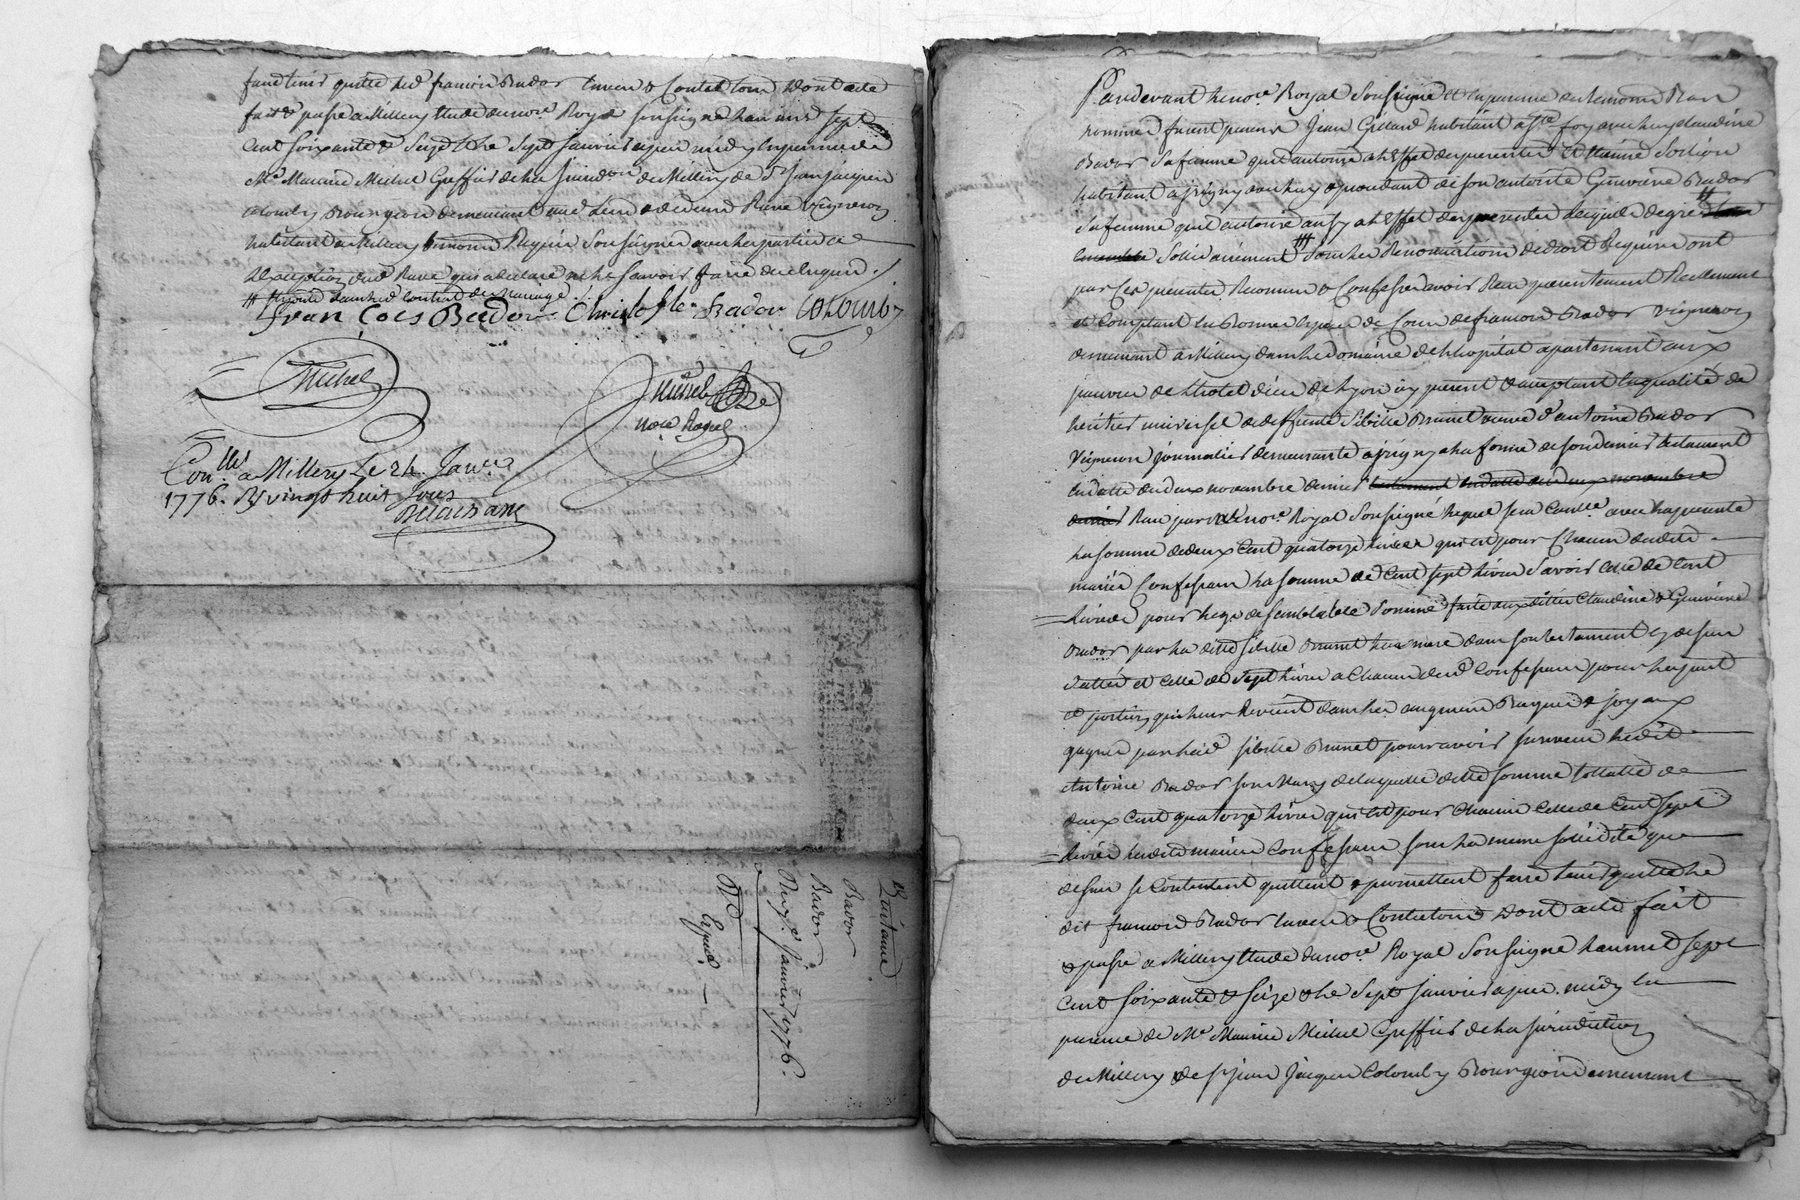 faire tenir quitte led. francois Bador envers & Contre tous Dont acte
fait & passé a Millery Etude du nore. Royal soussigné l'an mil sept
cent soixante & Seize & le Sept Janvier apres midy En presence de
Me. Maurice Michel Greffier de la Jurisdon. de Millery de Sr. Jean Jacques
Colomby Bourgeois demeurant aud. Lieu & de Rave vigneron
habitant a Millery Soussignés avec les parties a
L'exception dud. Rave qui a declaré ne le Savoir faire de ce Enquis ./.
dans led. contrat de Mariage
francois Bador Christofle Bador Colomby
Michel
Michel
nore Royal
Conllé a Millery Le 24 Janvier
1776. R vingt huit sous
Quittance
Bador
a
Bador
Du 7e. Janvier 1776.
Expiée.
Pardevant le nore. Royal Soussigné et En presence des temoins Bas
nommés furent presens Jean Gillard habitant a Ste. foy avec luy Claudine
Bador Sa femme qu'il autorise a L'Effet des presentes Et Etienne
habitant a Irigny avec luy & procedant de Son autorité Genevieve Bador
Sa femme qu'il autorise aussy a L'Effet des presentes Lesquels de gré
Solidairement Sous les Renonciations de droit Requises ont
par Ces presentes Reconnu & Confessé avoir Reçu presentement Reellement
et Comptant En Bonnes Especes de Cours de francois Bador vigneron
demeurant a Millery dans le Domaine de L'hopital apartenant aux
pauvres de L'hotel dieu de Lyon icy present & acceptant En qualité de
heritier universel de deffunte Sibille Brunet veuve d'antoine Bador
Vigneron journalier demeurante a Irigny a la forme de son dernier testament
En datte du deux novembre dernier testament En datte du deux novembre
dernier Reçu par Me. nore. Royal Soussigné lequel sera Conllé. avec la presente
La somme de deux Cent quatorze Livres qui est pour Chacun desdits
mariés Confessans La somme de Cent sept Livres Savoir celle de Cent
Livres pour Legs de Semblable Somme faite aux dittes Claudine & Genevieve
Bador par La ditte Sibille Brunet Leur mere dans son testament
datté et Celle de Sept Livres a Chacun desd. Confessans pour Les part
& portion qui Leur Revient dans Les augment Bagues & joyaux
gagnés par Lad. Sibille Brunet pour avoir Survecu Ledit
Antoine Badot Son Mary de laquelle ditte somme totalle de
deux Cent quatorze Livres qui est pour Chacun Celle de Cent Sept
Livres Lesdits mariés Confessans Sous La meme solidité que
dessus se Contentent quittent & promettent faire tenir quitte Le
dit francois Badot Envers & Contre tous Dont acte fait
& passé a Millery Etude du nore. Royal Soussigné L'an mil sept
Cent soixante & Seize & le Sept Janvier apres midy En
presence de Me. Maurice Michel Greffier de La jurisdiction
de Millery & de Sr. Jean Jacques Colomby Bourgeois demeurant